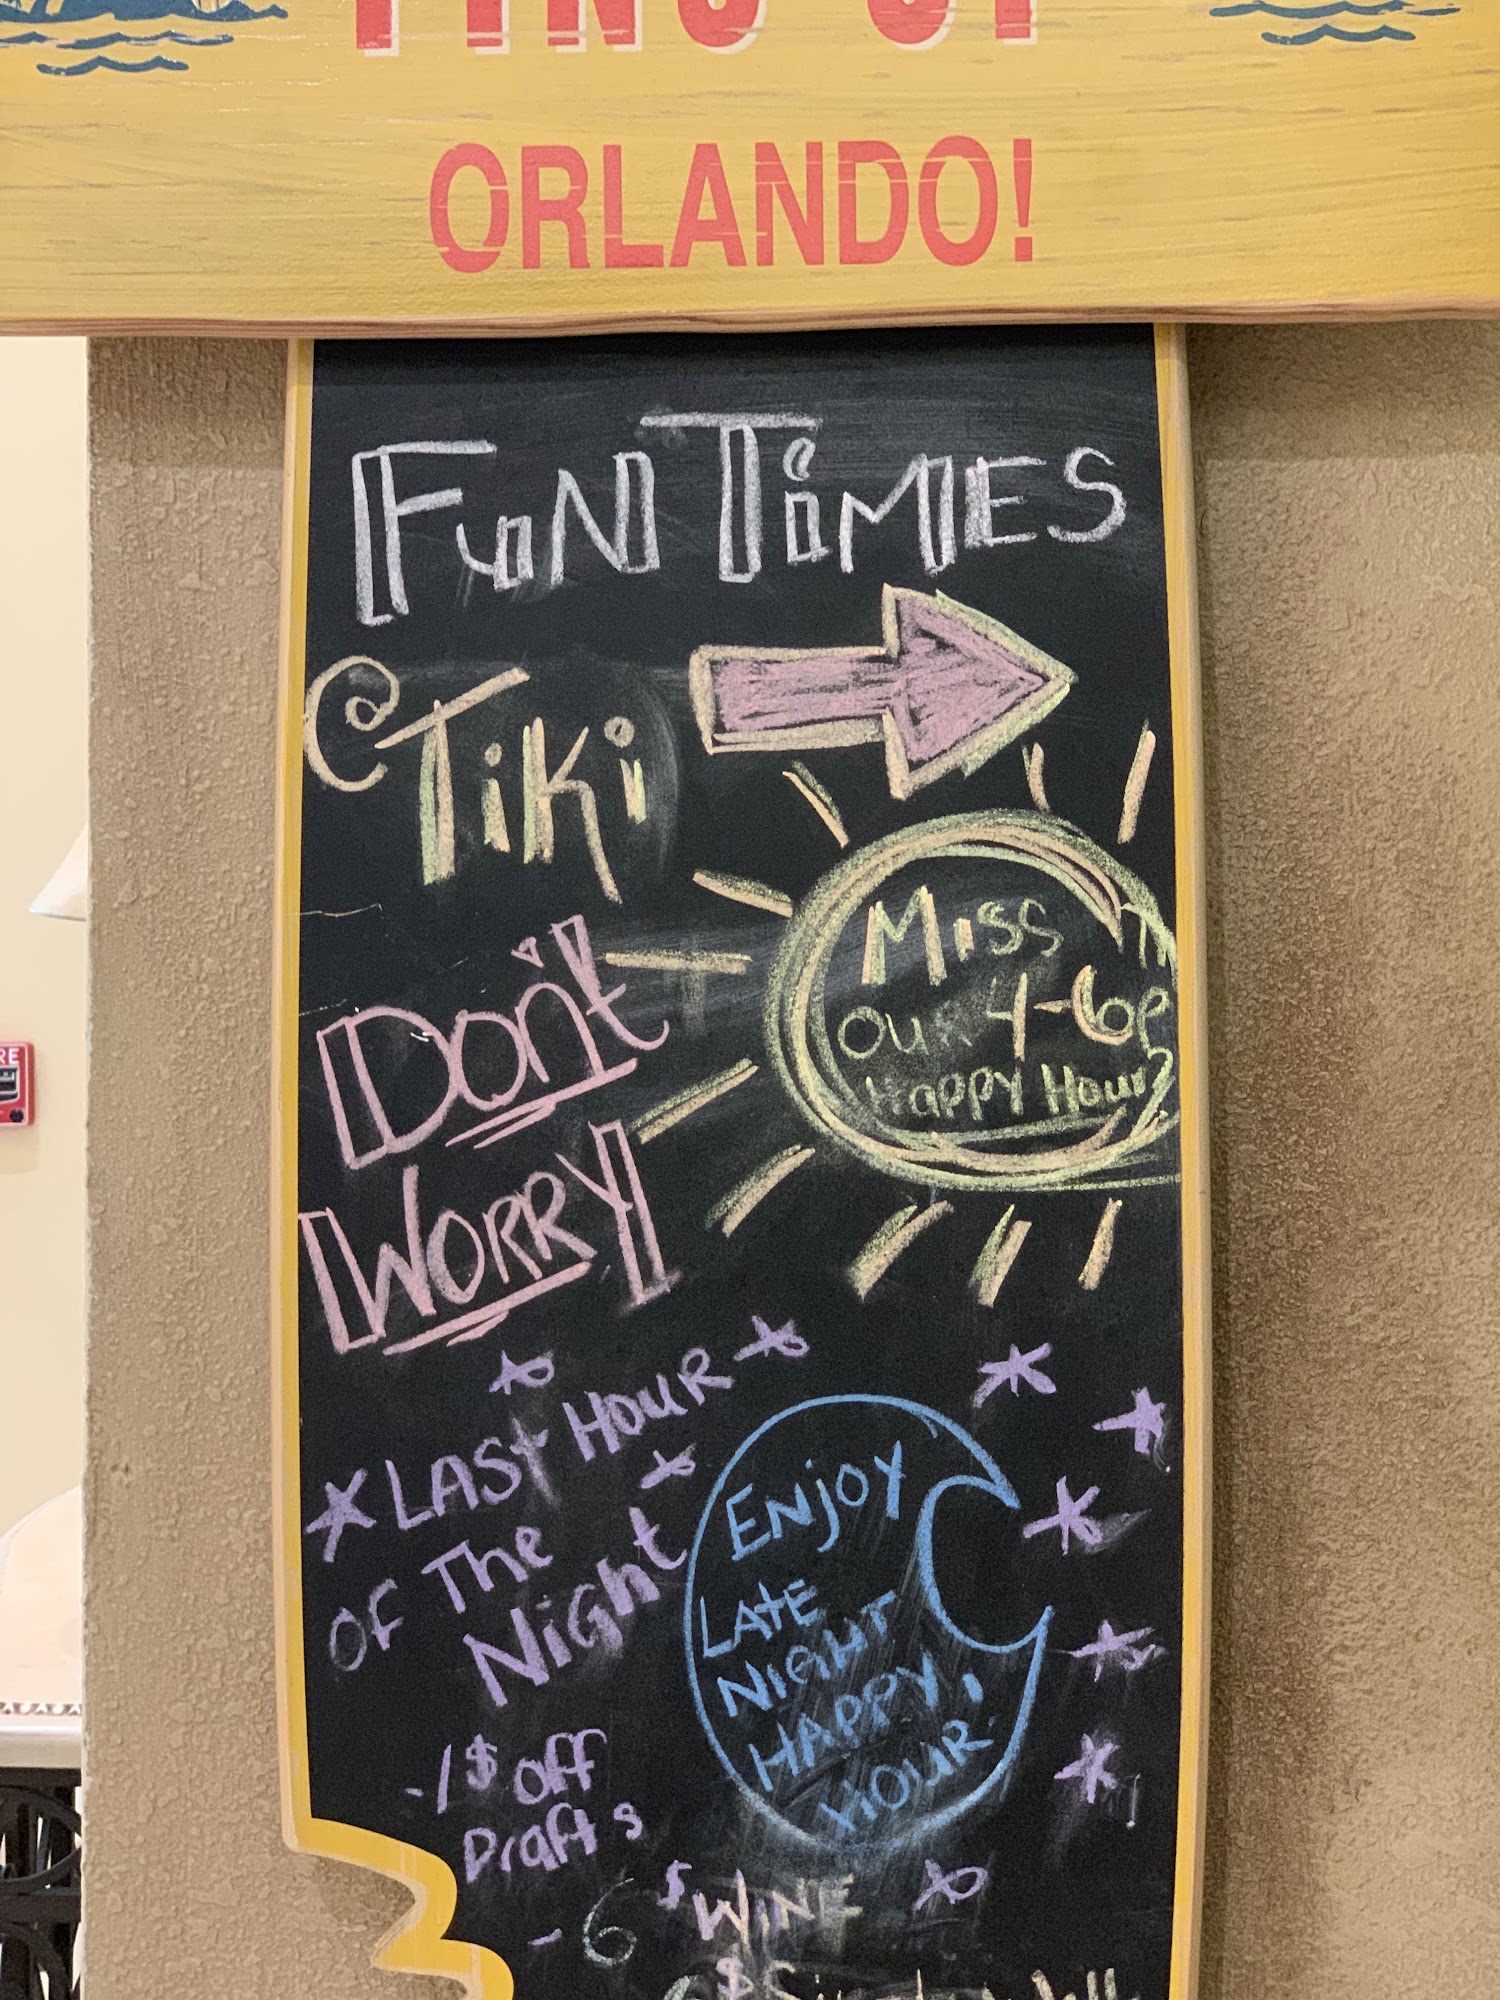 ORLANDO!
FUN TIMES
@ Tiki
Miss
Our 4-6p
Happy Hour?
Don't
Worry
LAST HOUR
OF The
Night
ENJOY
LATE
NIGHT
HAPPY
HOUR!
-1$ off
Drafts
- 6$ WINE
RE